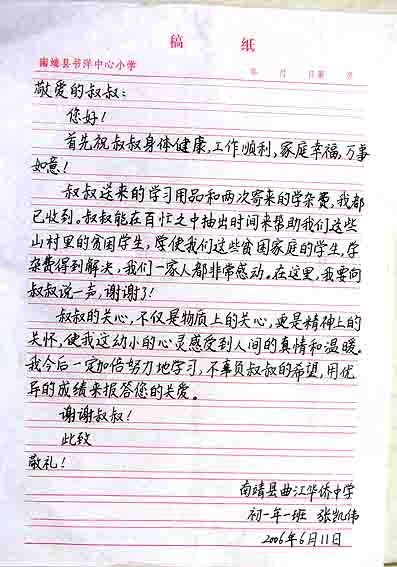 稿 纸
南靖县书洋中心小学 年 月 日第 页
敬爱的叔叔：
您好！
首先祝叔叔身体健康，工作顺利，家庭幸福，万事
如意！
叔叔送来的学习用品和两次寄来的学杂费，我都
已收到。叔叔能在百忙之中抽出时间来帮助我们这些
山村里的贫困学生，使我们这些贫困家庭的学生，学
杂费得到解决，我们一家人都非常感动。在这里，我要向
叔叔说一声，谢谢了！
叔叔的关心，不仅是物质上的关心，更是精神上的
关怀，使我这幼小的心灵感受到人间的真情和温暖。
我今后一定加倍努力地学习，不辜负叔叔的希望，用优
异的成绩来报答您的关爱。
谢谢叔叔！
此致
敬礼！
南靖县曲江华侨中学
初一年一班 张凯伟
2006年6月11日